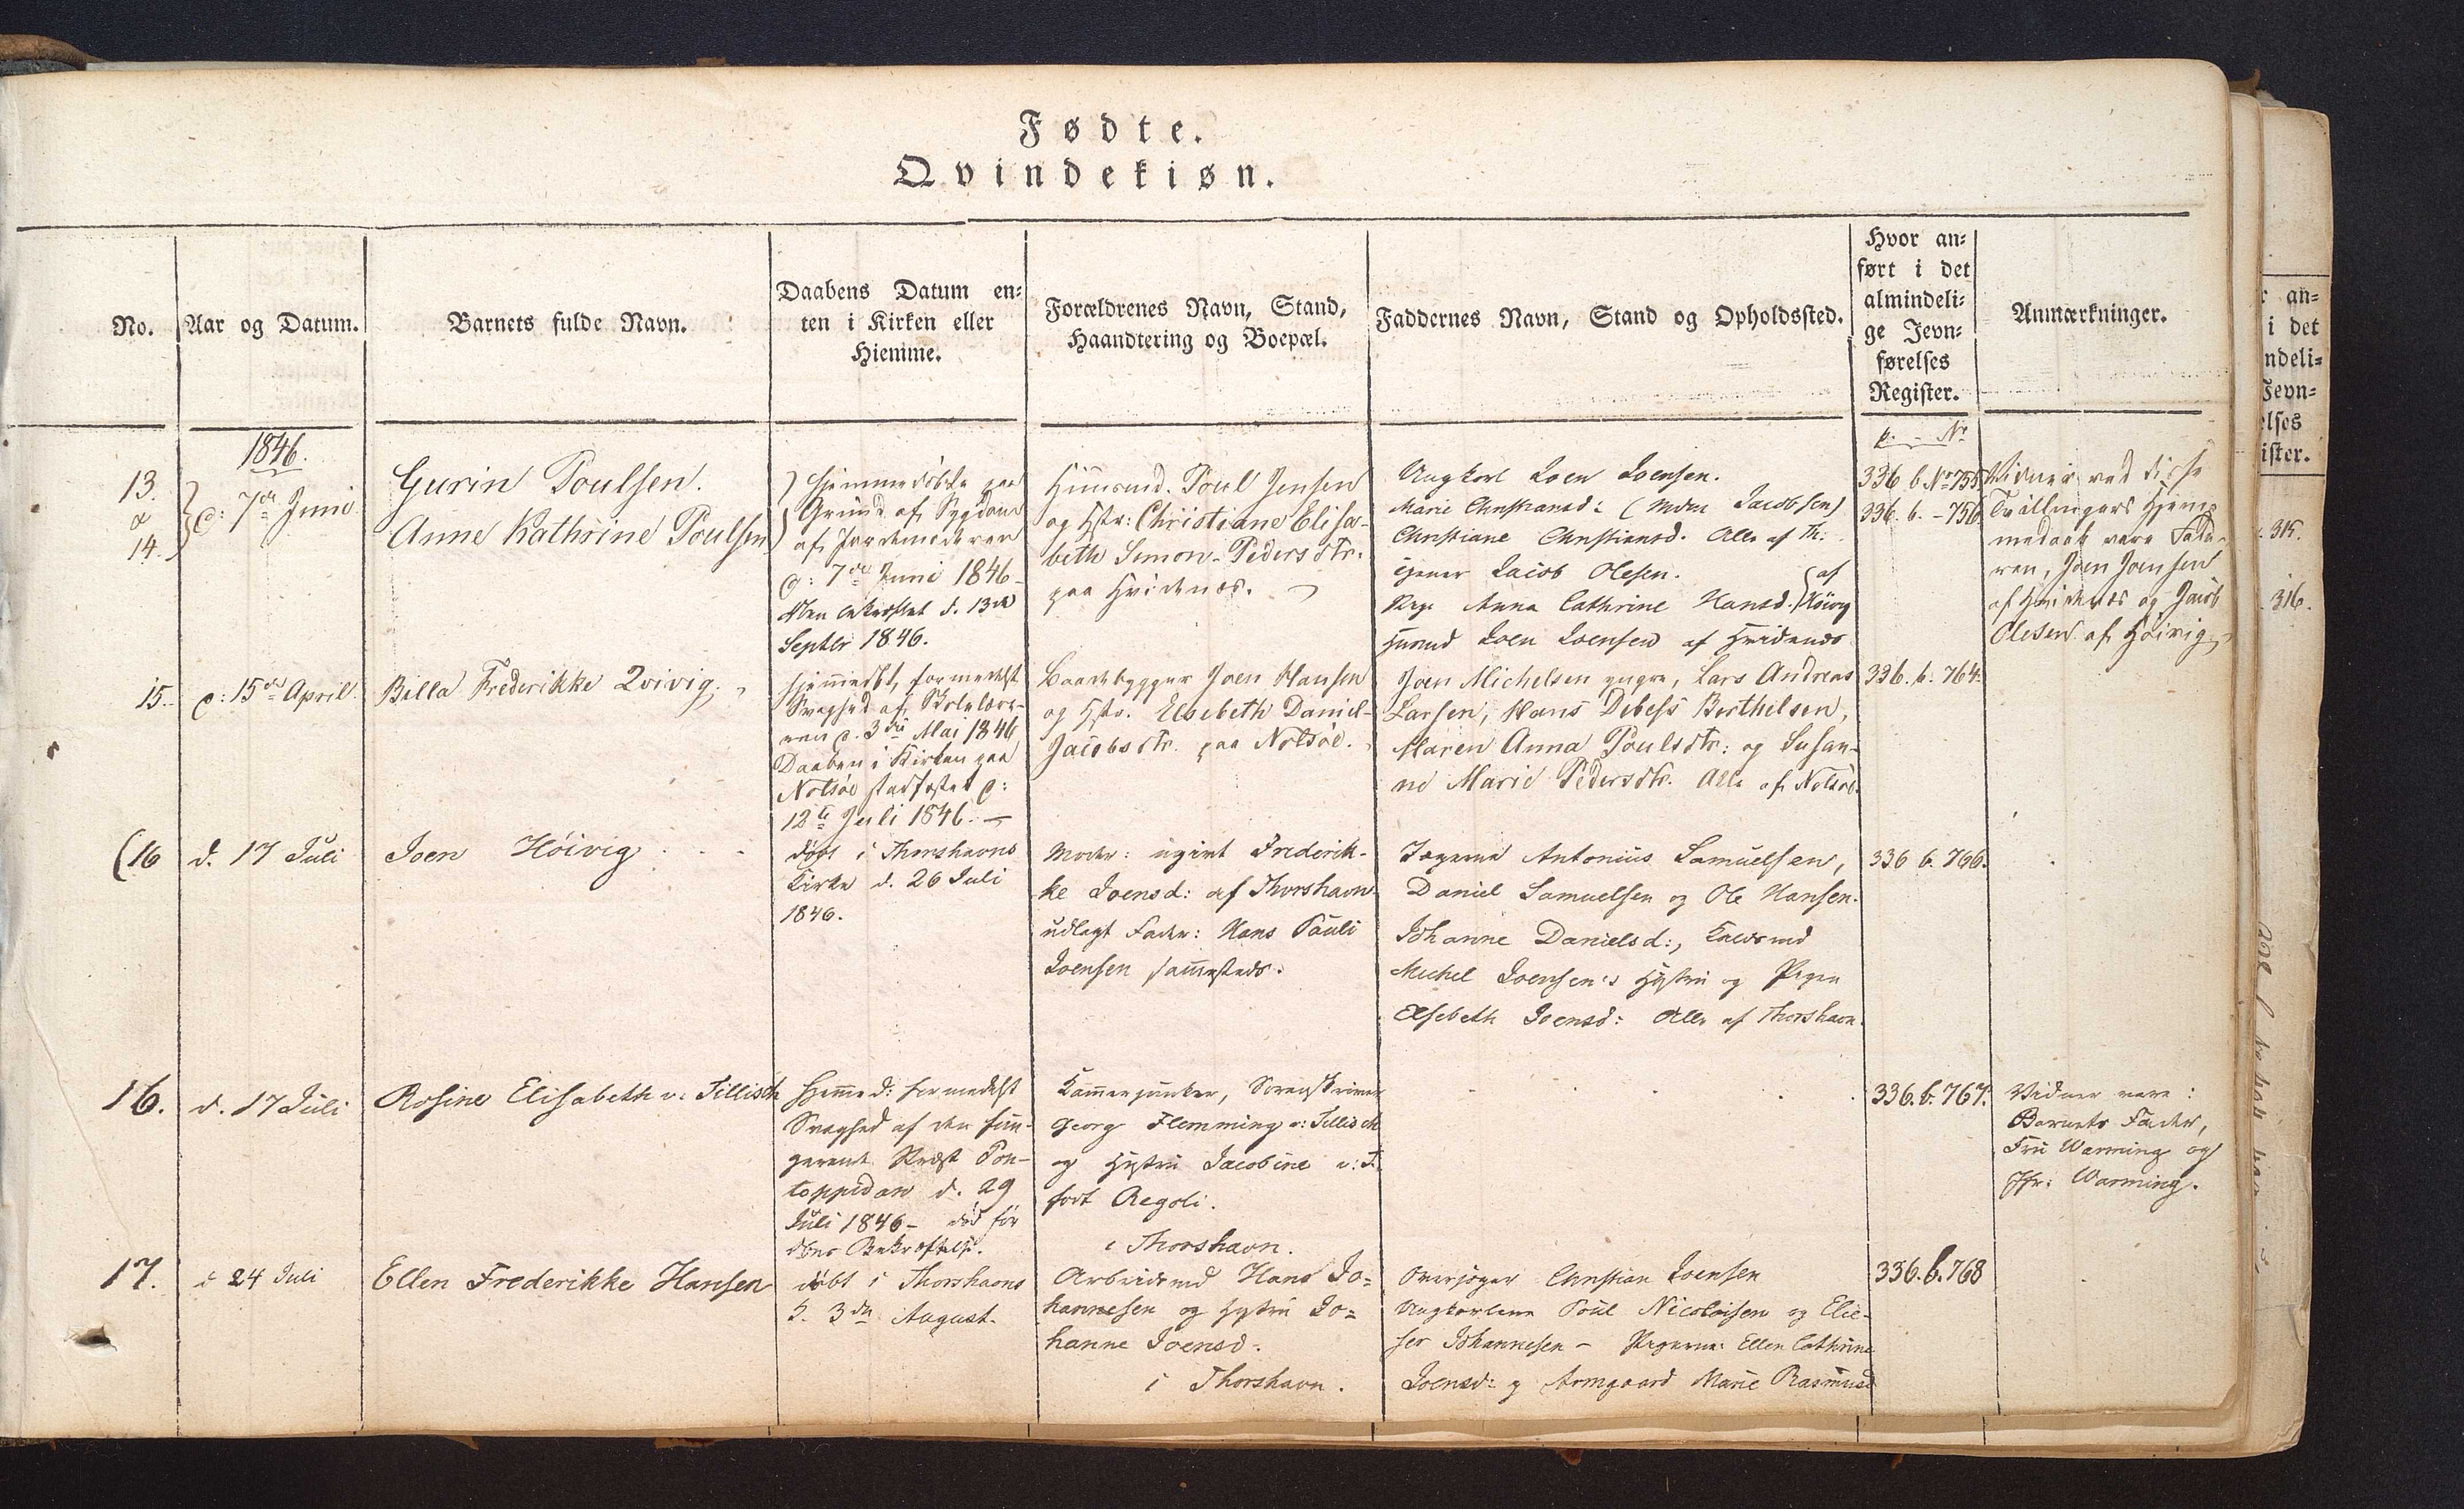 Fødte.
Qvindekiøn.
No.
Aar og Datum.
Barnets fulde Navn.
Daabens Datum en-
ten i Kirken eller
Hiemme.
Forældrenes Navn, Stand,
Haandtering og Boepæl.
Faddernes Navn, Stand og Opholdssted.
Hvor an-
ført i det
almindeli-
ge Jevn-
førelses
Register.
Anmærkninger.
1846.
p. - No
13.
&
14.
d: 7de Juni
Gurin Poulsen.
Anne Kathrine Poulsen
Hjemmedöbte paa
Grund af Sygdom
af Jordemoderen
d: 7de Juni 1846-
Men bekræftet d. 13de
Septbr 1846.
Huusmd. Poul Jensen
og Hstr: Christiane Elisa-
beth Simon-Pedersdtr.
paa Hvidenæs.
Ungkarl Joen Joensen.
Marie Christiansd: (Mdm Jacobsen)
Christiane Christiansd. Alle af Th:
Jacob Olesen.
Pige Anna Cathrine Hansd.
} af Höivig
Huusmd Joen Joensen af Hvidenæs
336 b No 755
336. b. - 756
Vidner ved disse
Tvillingers Hjem-
medaab vare Fade-
ren, Joen Joensen
af Hvidenæs og Jacob
Olesen af Höivig
15.
d: 15de April.
Billa Frederikke Qvivig.
hjemmedbt, formedelst
Svaghed af Skolelære-
ren d. 3die Mai 1846
Daaben i Kirken paa
Nolsöe stadfæstet d:
12te Juli 1846. -
Baadebygger Joen Hansen
og Hstr. Elsebeth Daniel-
Jacobsdtr. paa Nolsöe.
Joen Michelsen yngre, Lars Andreas
Larsen, Hans Debess Berthelsen,
Maren Anna Poulsdtr: og Susan-
ne Marie Pedersdtr. Alle af Nolsöe.
336. b. 764.
(16
d. 17 Juli
Joen Höivig
döbt i Thorshavns
Kirke d. 26 Juli
1846.
Moder: ugivt Frederik-
ke Joensd: af Thorshavn
udlagt Fader: Hans Pauli
Joensen sammesteds.
Jægerne Antonius Samuelsen,
Daniel Samuelsen og Ole Hansen.
Johanne Danielsd:,
Michel Joensen's Hustru og Pigen
Elsebeth Joensd: Alle af Thorshavn.
336 b. 766.
16.
d. 17 Juli
Rosine Elisabeth v: Tillisch
Hjemmed: formedelst
Svaghed af den fun-
gerende Præst Pon-
toppidan d. 29
Juli 1846- död för
dbns Bekræftelse.
Kammerjunker, Sorenskriver
Georg Flemming v: Tillisch
og Hustru Jacobine v: T.
født Aegoli.
i Thorshavn.
336. b. 767.
Vidner vare:
Barnets Fader,
Fru Warming og
Jfr: Warming.
17.
d 24 Juli
Ellen Frederikke Hansen
döbt i Thorshavns
K. 3die August.
Arbeidsmd Hans Jo-
hannesen og Hustru Jo-
hanne Joensd:
i Thorshavn.
Overjæger Christian Joensen
Ungkarlene Poul Nicolaisen og Elie-
ser Johannesen - Pigerne: Ellen Cathrine
Joensd: og Armgaard Marie Rasmusd
336. b. 768
r an-
i det
ndeli-
Jevn-
elses
ister.
315.
316.